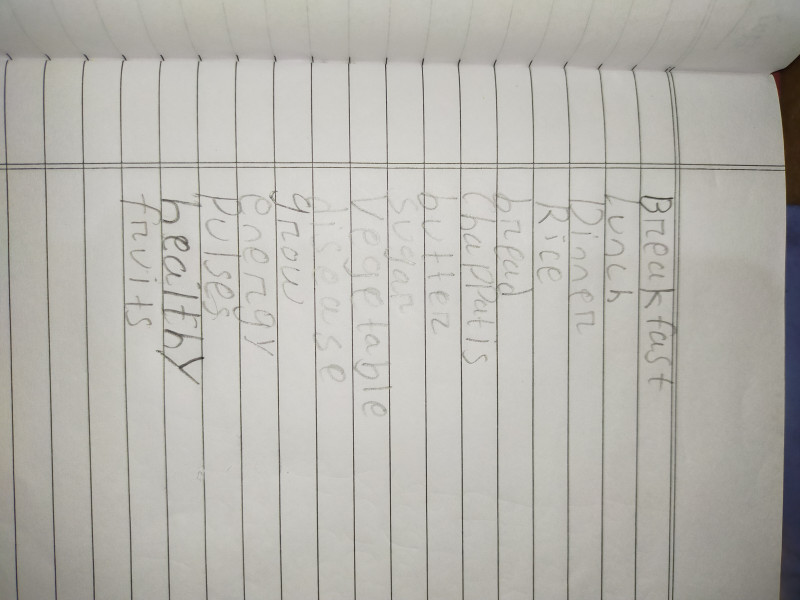 Breakfast
lunch
Dinner
Rice
bread
chappatis
butter
sugar
vegetable
disease
grow
energy
pulses
healthy
fruits